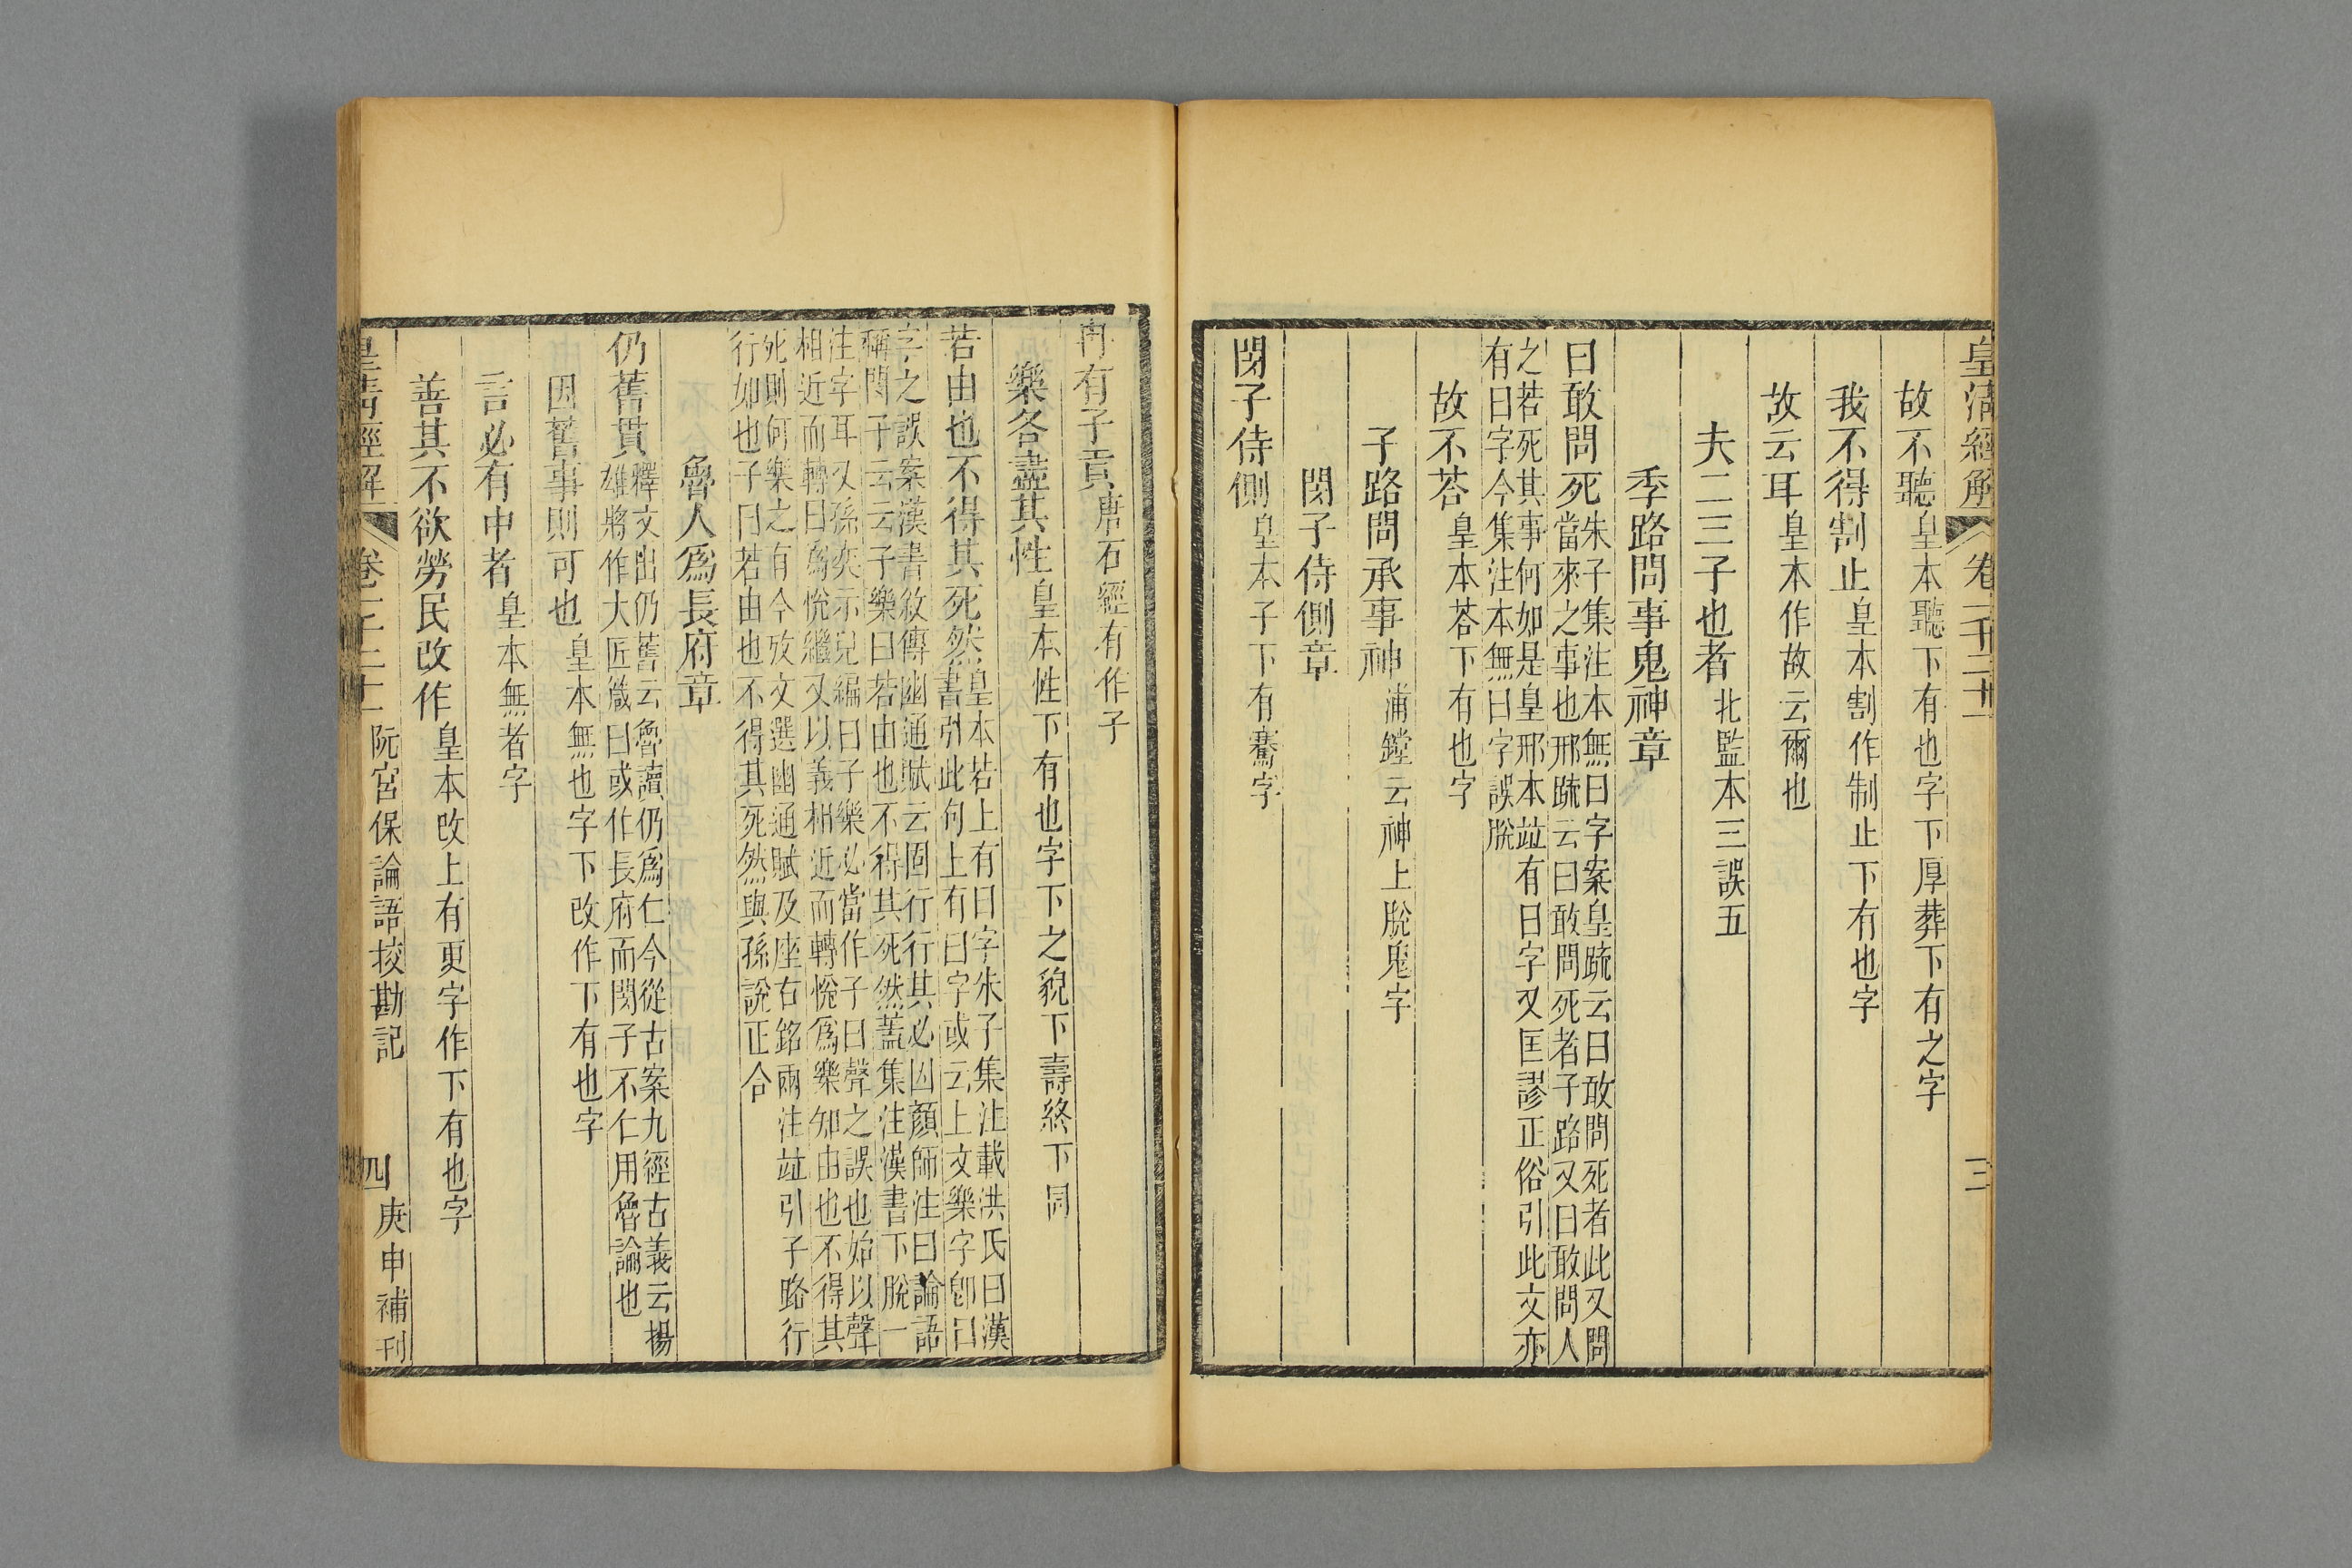 皇清經解 卷一千二十一 三
故不聽皇本聽下有也字下厚葬下有之字
我不得割止皇本割作制止下有也字
故云耳皇本作故云爾也
夫二三子也者北監本三誤五
季路問事鬼神章
曰敢問死朱子集注本無曰字案皇疏云曰敢問死者此又問
當來之事也邢疏云曰敢問死者子路又曰敢問人
之若死其事何如是皇邢本竝有曰字又匡謬正俗引此文亦
有曰字今集注本無曰字誤脫
故不荅皇本荅下有也字
子路問承事神浦鏜云神上脫鬼字
閔子侍側章
閔子侍側皇本子下有騫字
冉有子貢唐石經有作子
樂各盡其性皇本性下有也字下之貌下壽終下同
若由也不得其死然皇本若上有曰字朱子集注載洪氏曰漢
書引此句上有曰字或云上文樂字卽曰
字之誤案漢書敘傳幽通賦云固行行其必凶顏師注曰論語
稱閔子云云子樂曰若由也不得其死然蓋集注漢書下脫一
注字耳又孫奕示兒編曰子樂必當作子曰聲之誤也始以聲
相近而轉曰爲悅繼又以義相近而轉悅爲樂知由也不得其
死則何樂之有今攷文選幽通賦及座右銘兩注竝引子路行
行如也子曰若由也不得其死然與孫說正合
魯人爲長府章
仍舊貫釋文出仍舊云魯讀仍爲仁今從古案九經古義云揚
雄將作大匠箴曰或作長府而閔子不仁用魯論也
因舊事則可也皇本無也字下改作下有也字
言必有中者皇本無者字
善其不欲勞民改作皇本改上有更字作下有也字
皇清經解 卷一千二十一 阮宮保論語挍勘記 四 庚申補刊